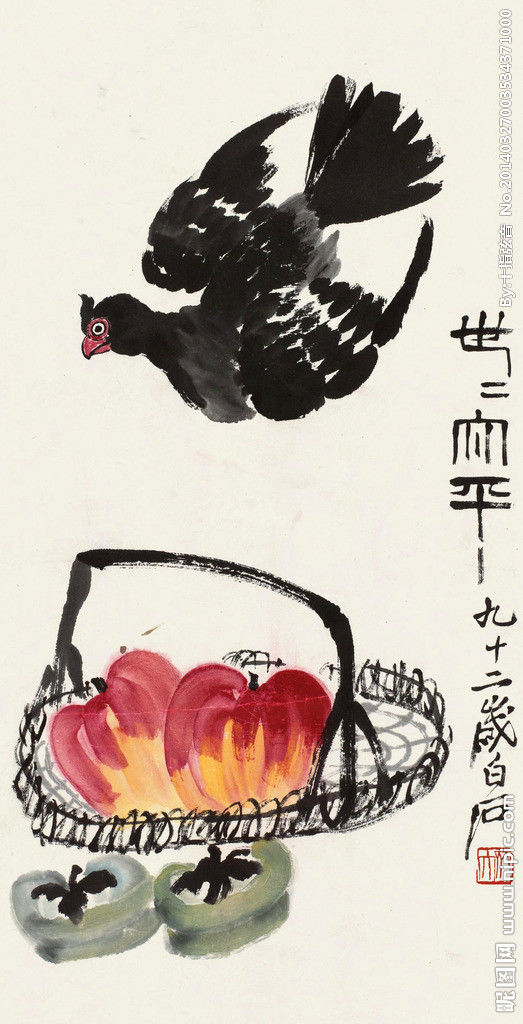 世二太平
九十二歲白石
By:十指弦音 No.20140327003534371000
昵图网 www.nipic.com